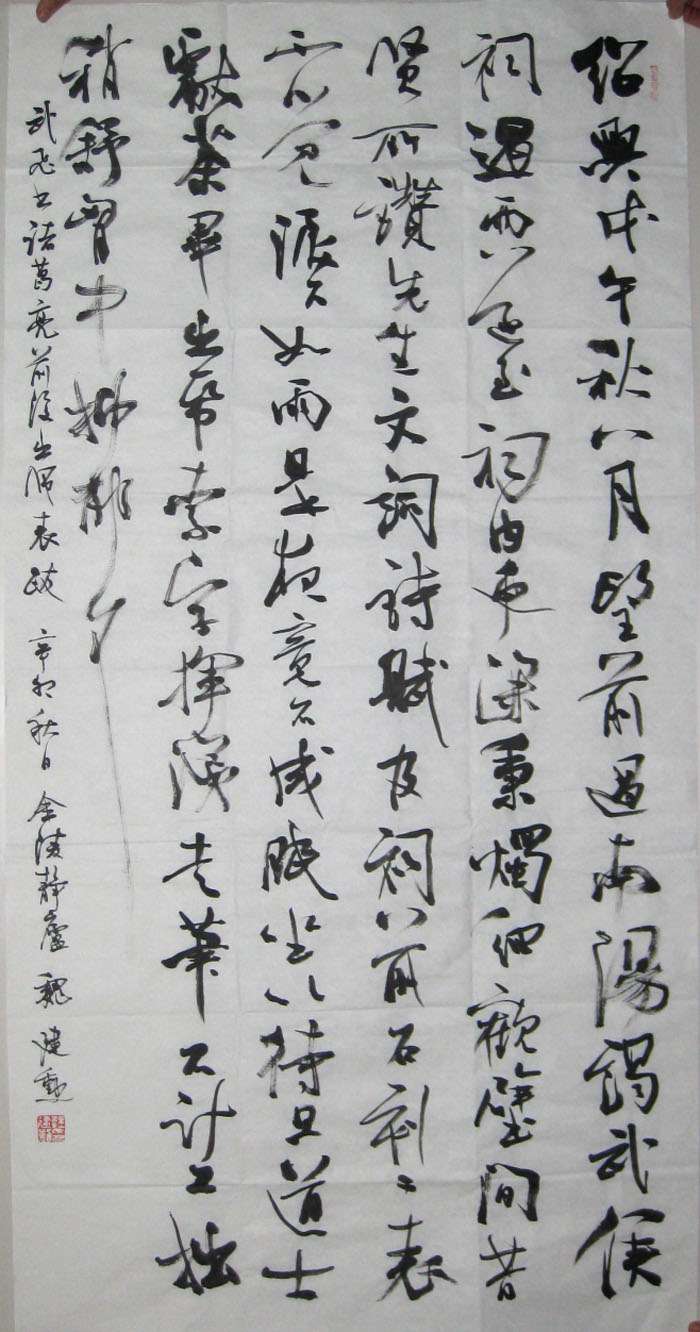 紹興戊午秋八月望前過南陽謁武侯
祠遇雨遂宿祠内更深秉燭細觀壁間昔
賢所讚先生文詞詩賦及祠前石刻二表
不覺淚下如雨是夜竟不成眠坐以待旦道士
獻茶畢出帋索字揮涕走筆不計工拙
稍舒胸中抑郁耳
飞书諸葛亮前後出师表跋 辛卯秋日 金陵静廬 魏建勳